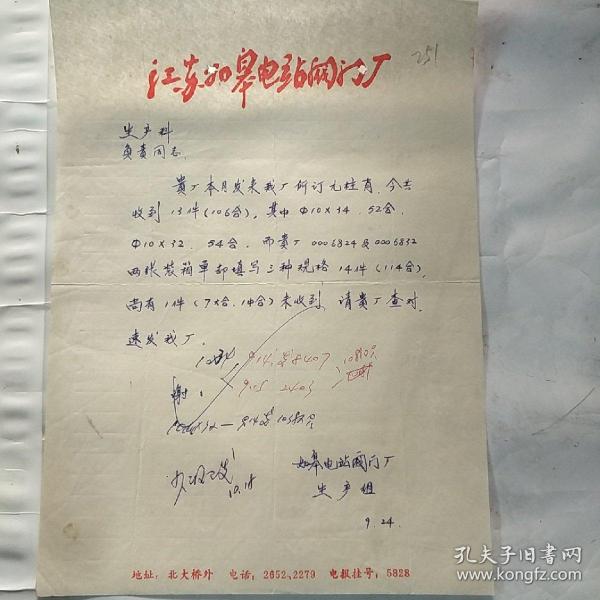 江苏如皋电站阀门厂
251
生产科
负责同志
贵厂本月发来我厂所订元柱肖，今共
收到13件(106合)，其中Φ10×34 52合，
Φ10×32 54合，而贵厂0006824&0006832
两张装箱单却填写三种规格14件(114合)，
尚有1件(未收到 请贵厂查对
速发我厂。
谢！
如皋电站阀门厂
10.18
生产组
9.24.
地址：北大桥外 电话：2652、2279 电报挂号：5828
孔夫子旧书网
www.kongfz.com